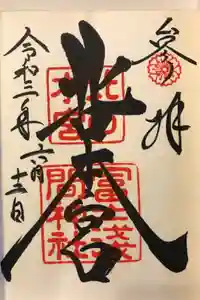 参拝
北口本宮
北口本宮
冨士浅間神社
令和三年六月